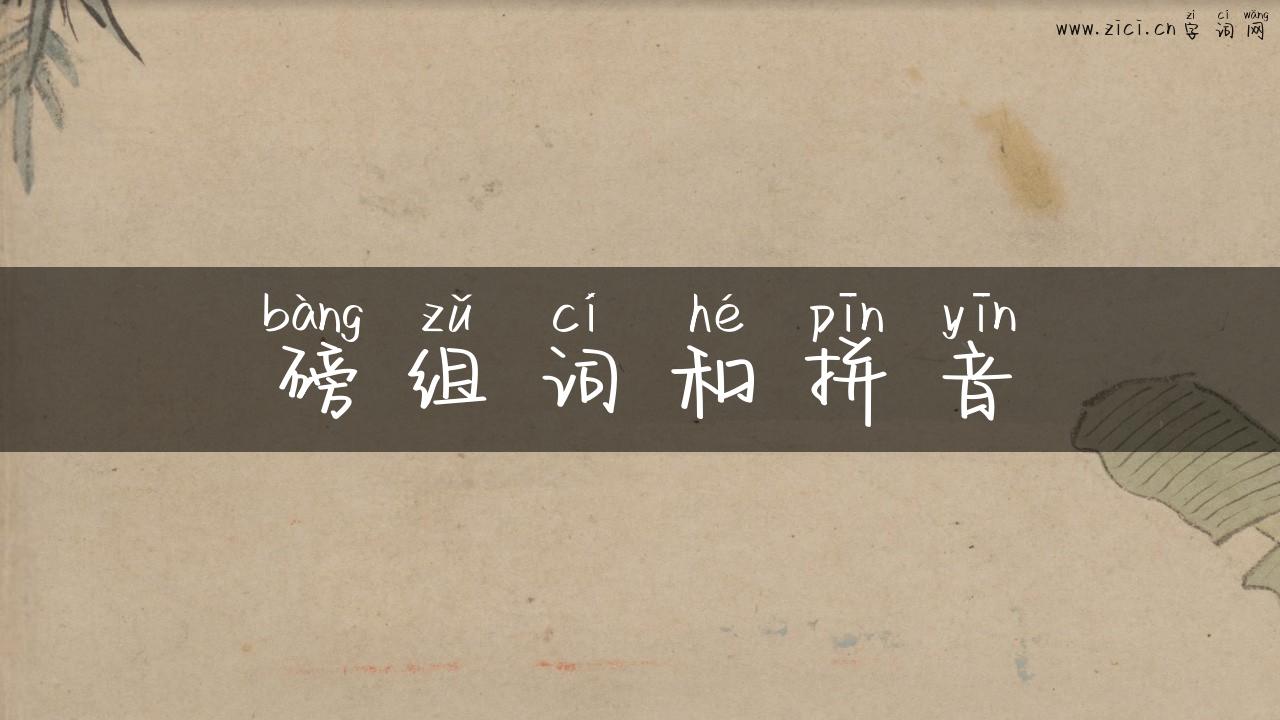 zì cí wǎng
www.zici.cn 字词网
bàng zǔ cí hé pīn yīn
磅组词和拼音